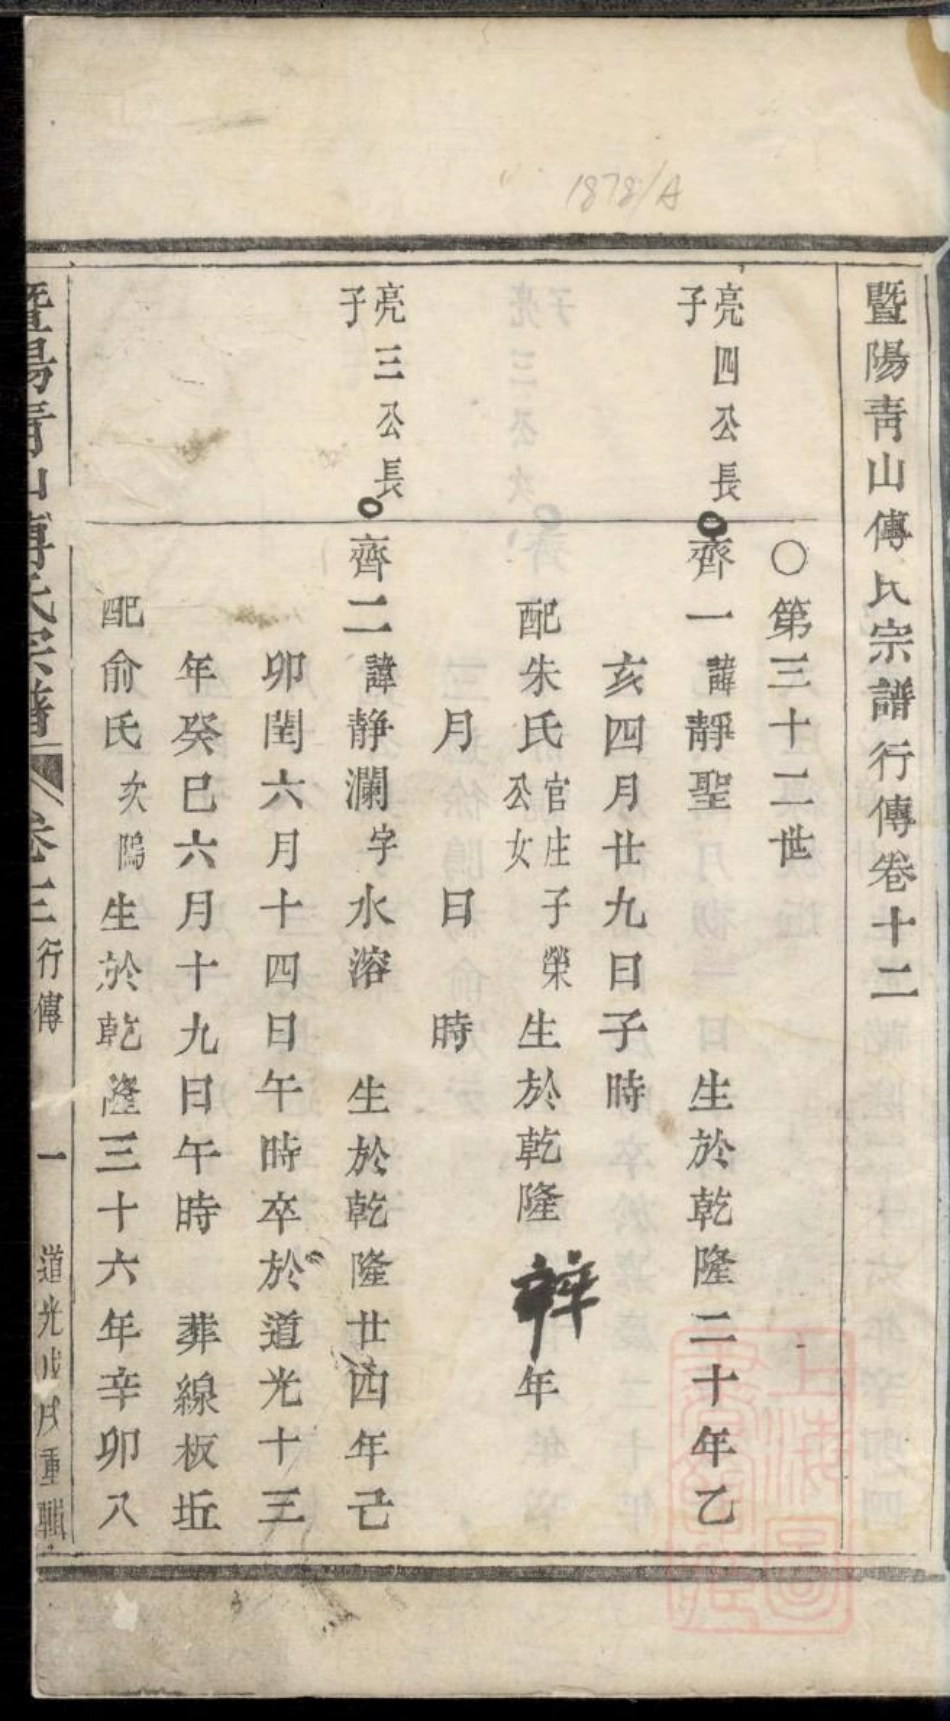 1878/A
暨陽青山傅氏宗譜行傳卷十二
〇第三十二世
亮四公長子
齊一諱靜聖 生於乾隆二十年乙
亥四月廿九日子時
配朱氏官庄子榮公女生於乾隆 年
月 日 時
亮三公長子
齊二諱静瀾字水溶 生於乾隆廿四年己
卯閏六月十四日午時卒於道光十三
年癸巳六月十九日午時 葬線板坵
配俞氏次隖生於乾隆三十六年辛卯八
暨陽青山傅氏宗譜 卷十三 行傳 一 道光戊戌重輯
上海圖書館藏